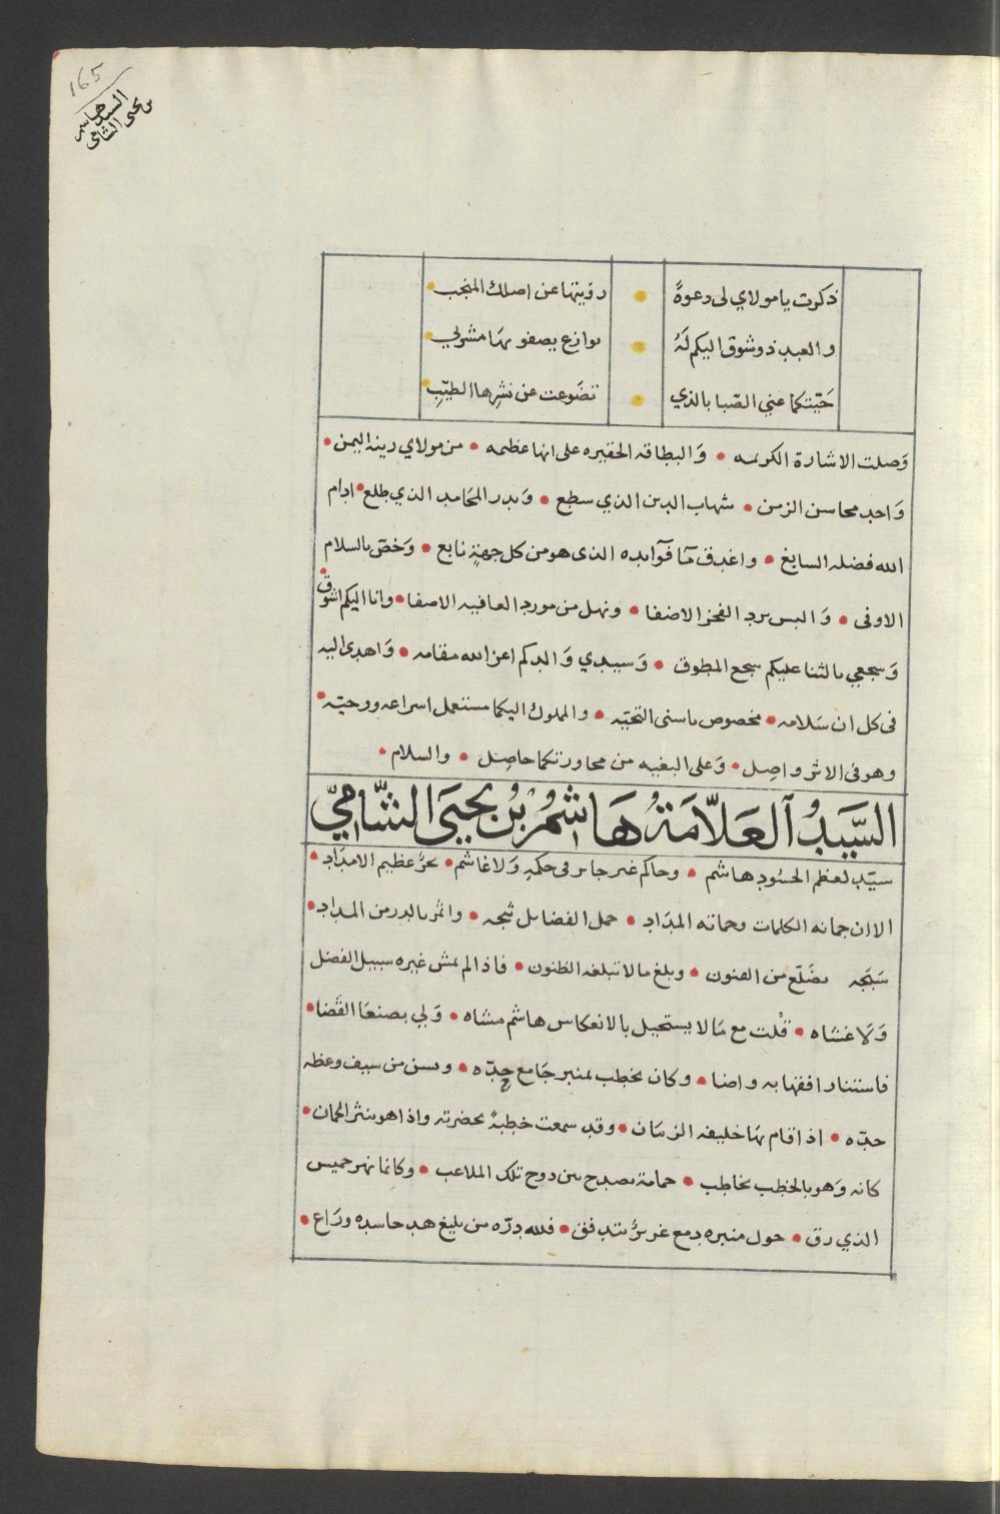 165
السيد هاشم
بن يحيى الشامي
ذكرت يا مولاي لى دعوةً • رويتها عن اصلك المنجب
والعبد ذو شوق اليكم لَهُ • نوازع يصفو بها مشربي
حَيّتكما عني الصّبا بالذي • تضَوعت عن نشرها الطيّبِ
وَصلت الاشارة الكريمه • وَالبطاقه الحقيره على انها عظيمه • من مولاي زينة اليمن •
وَاحد محاسن الزمن • شهاب الدين الذي سطع • وَبدر المحَامد الذي طلع • ادام
الله فضله السابغ • واغدق مآ فوآيده الذى هو من كل جهةٍ نابع • وَخصّ بالسلام
الاوفى • وَالبس برد الفخر الاضفا • ونهل من مورد العافيه الاصفا • وانا اليكم اشوق
وَسجعي بالثنا عليكم سجع المطوق • وَسيدي وَالدكم اعز الله مقامه • وَاهدى اليه
فى كل ان سَلامه • مخصوص باسنى التحيّه • والملوك اليكما مستعمل اسراعه ووحيّه •
وهو فى الاثر واصِل • وَعلى البغيه من محاورتكما حاصِل • والسلام •
السَّيّدُ آلعَلاّمَةُ هَاشمُ بْنُ يحيَى الشّامِيّ
سيّد لعظم الحسُودِ هاشم • وحاكم غير جاير فى حكمهِ وَلا غاشم • بحرٌ عظيم الامدَاد •
الا ان جمانه الكلمات وحماته المدَاد • حمل الفضايل ثبجه • واثر بالدر من المداد •
سَبَجه تضَلّع من الفنون • وبلغ ما لا تبلغه الظنون • فاذا لم يمش غيره سبيل الفضل
وَلاَ غشاه • قُلت مع مَا لا يستحيل بالانعكاس هاشم مشاه • وَلي بصنعَا القَضا •
فاستنار افقها به واضا • وكان يخطب بمنبر جَامع جدّه • ويسن من سيف وعظه
حدّه • اذ اقام بهَا خليفه الزمَان • وقد سمعت خطبةً بحضرته واذا هو ينثر الجمان •
كانه وَهو بالخطب يخاطِب • حمامة تصدح من دوح تلك الملاعب • وكانما نهر حميس
الذي رق • حول منبره بدمع غربٌ يتدفق • فلله درّه من بليغ هد حاسده ورَاع •